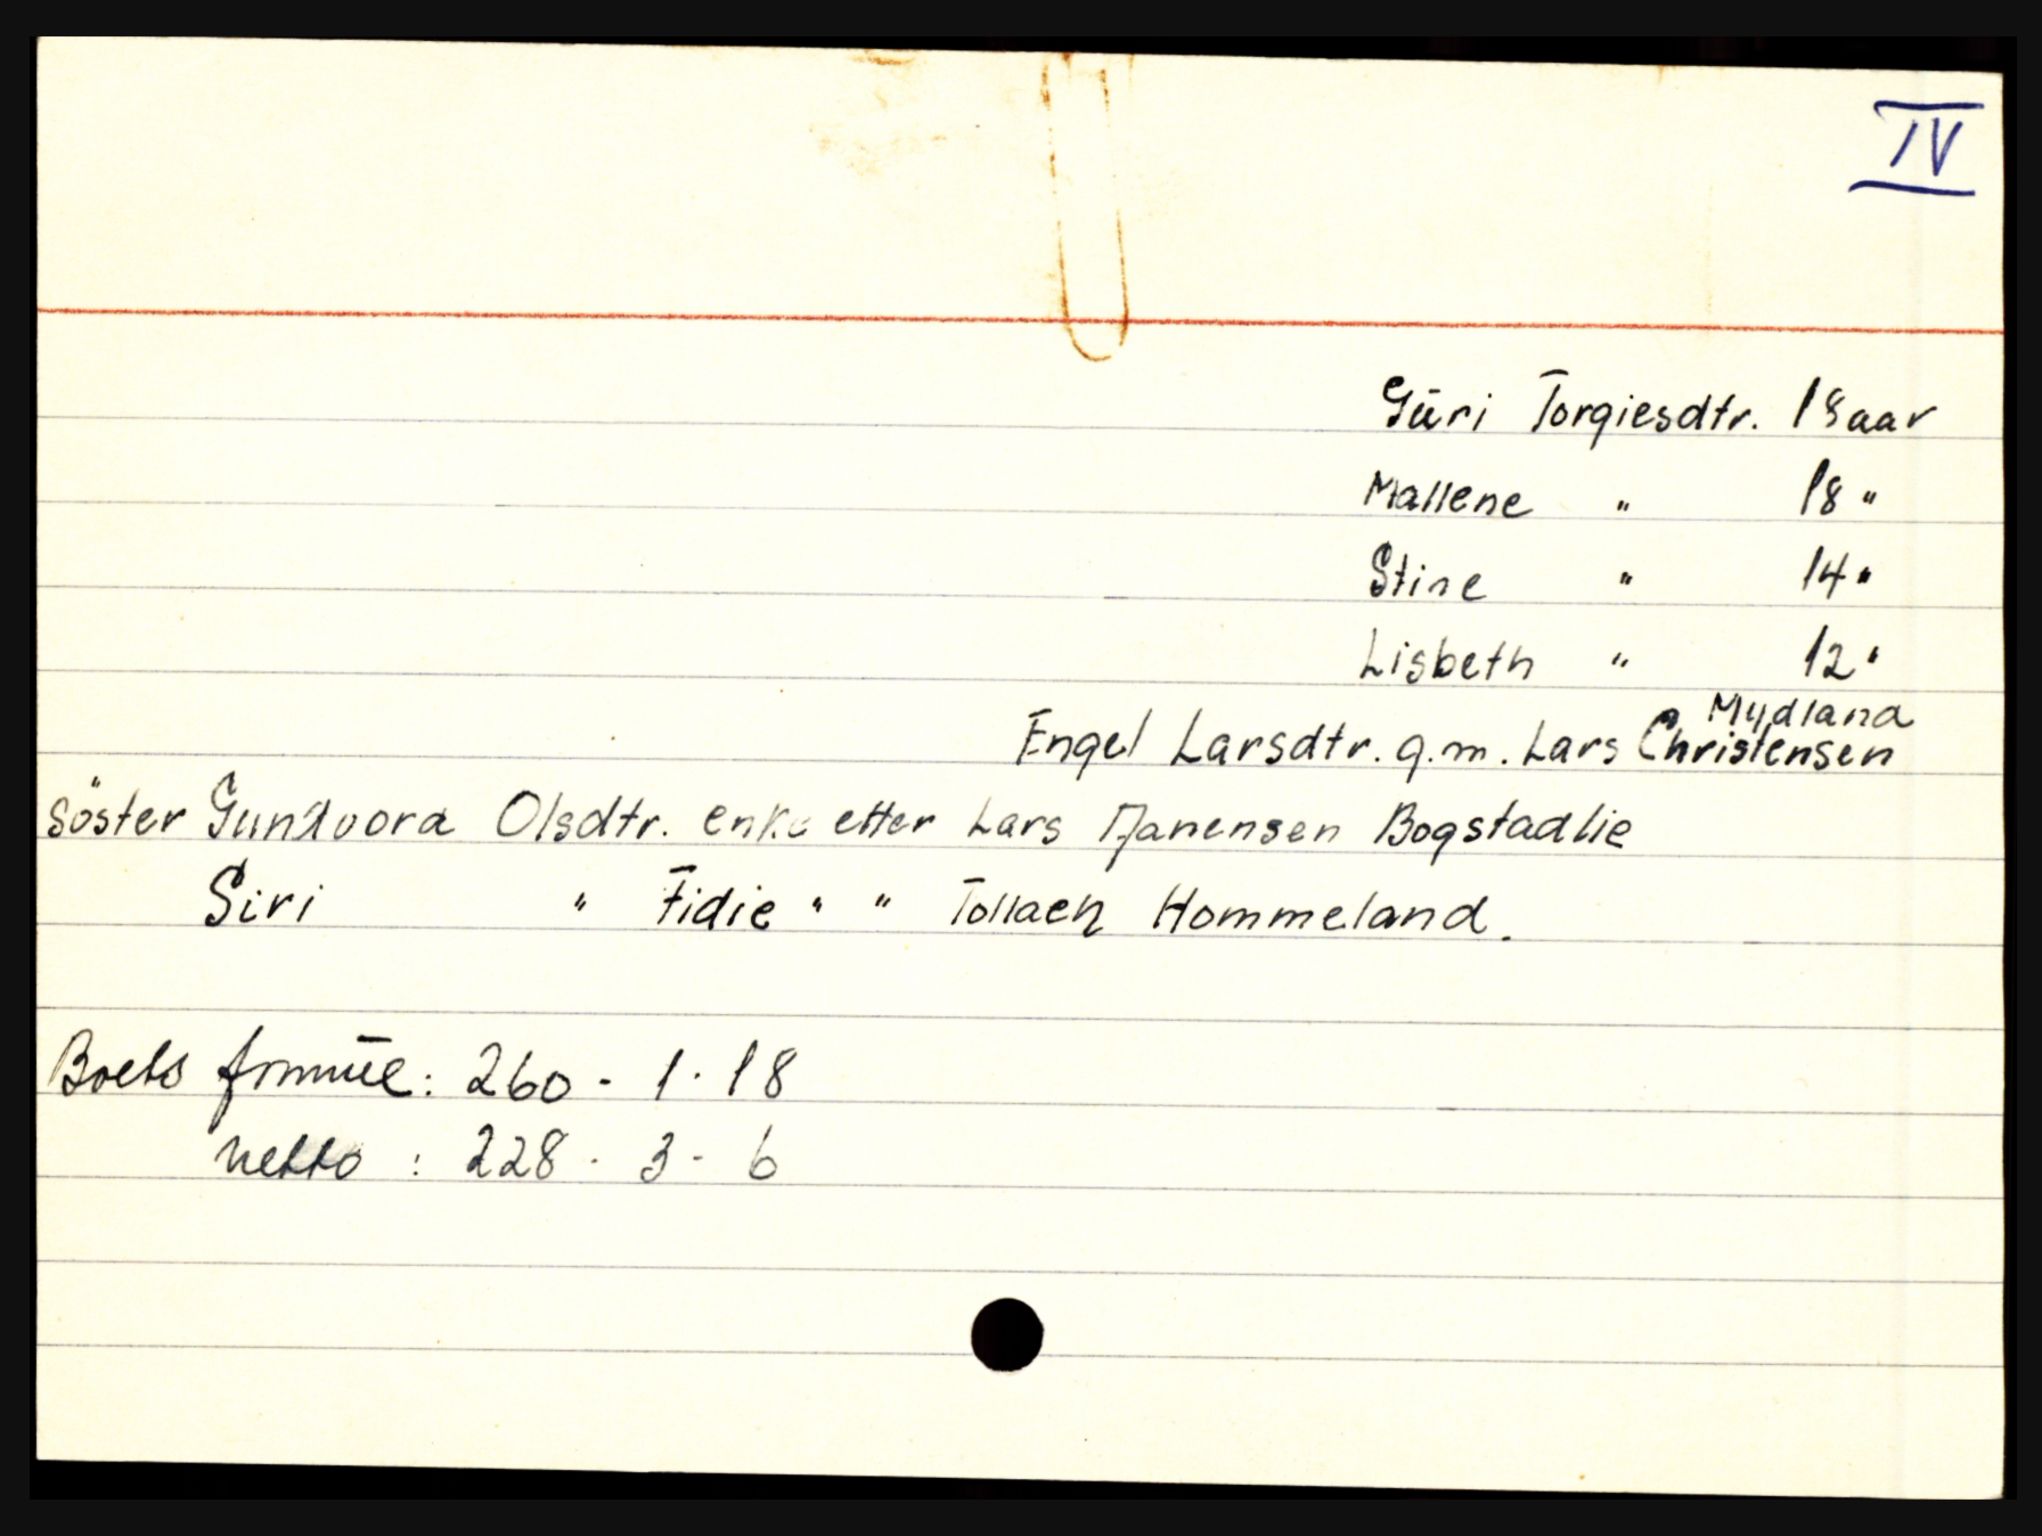 IV
Gūri Torgiesdtr. 18 aar
Mallene " 18 "
Stine " 14 "
Lisbeth " 12 "
Mydland
Engel Larsdtr. g.m. Lars Christensen
söster Gundvora Olsdtr. enke etter Lars Bogstadlie
Siri " Fidie " " Tollaen Hommeland.
Boets formue: 260 - 1 - 18
netto : 228 - 3 - 6